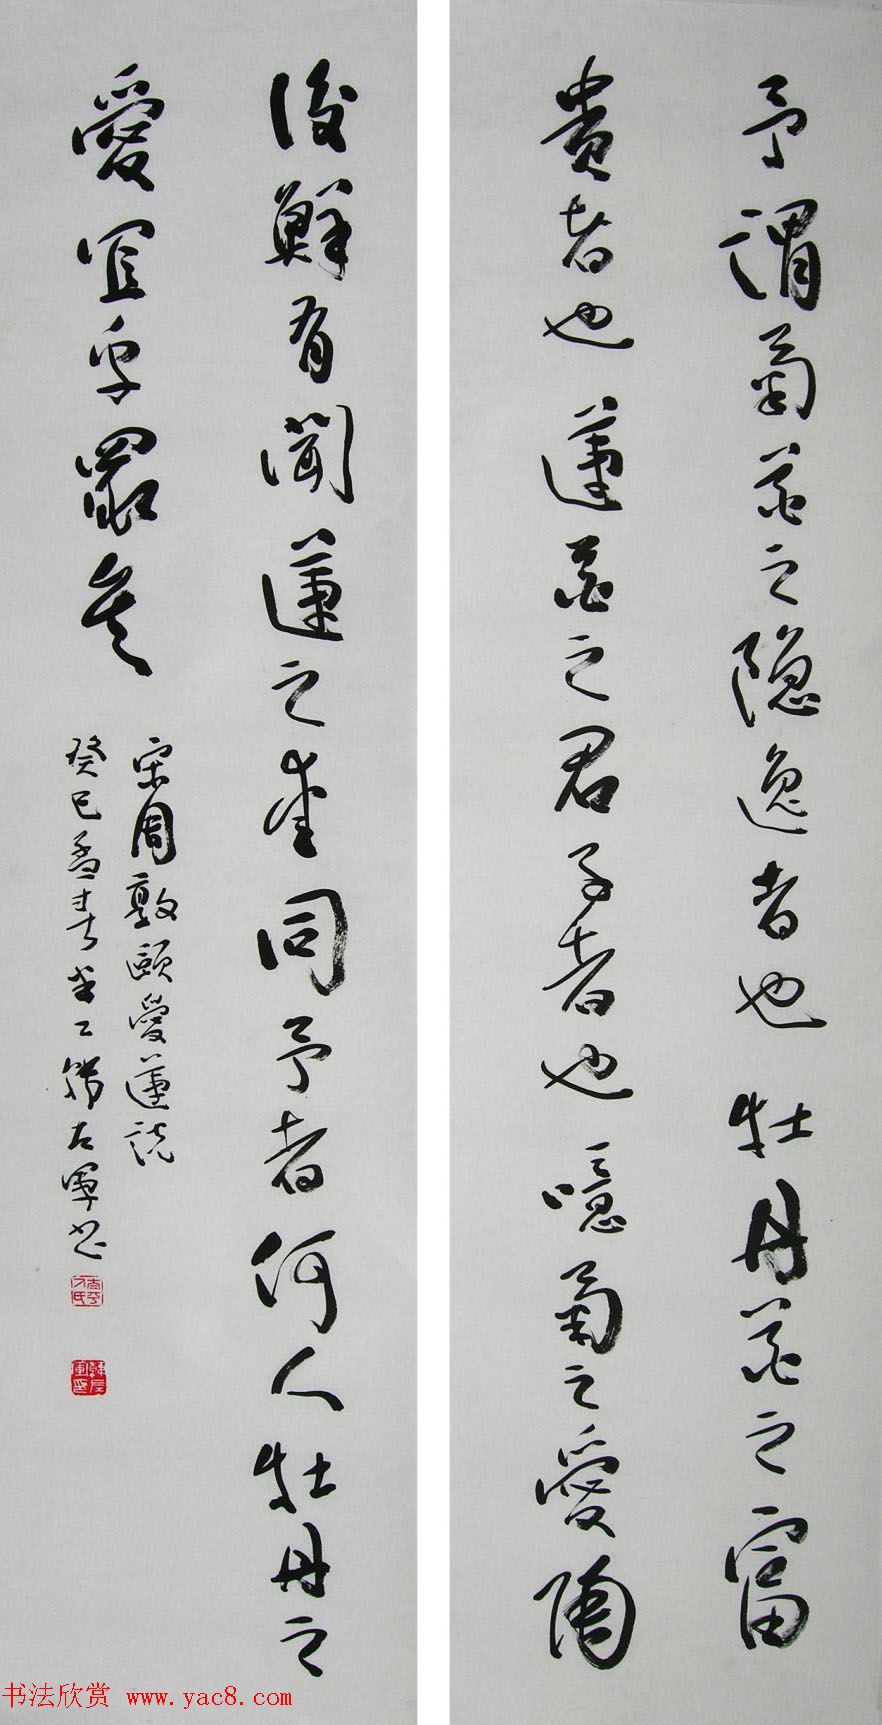 予謂菊花之隱逸者也牡丹花之富
貴者也蓮花之君子者也噫菊之愛陶
後鮮有聞蓮之愛同予者何人牡丹之
愛宜乎眾矣
宋周敦頤愛蓮說
癸巳孟春左軍書
书法欣赏 www.yac8.com